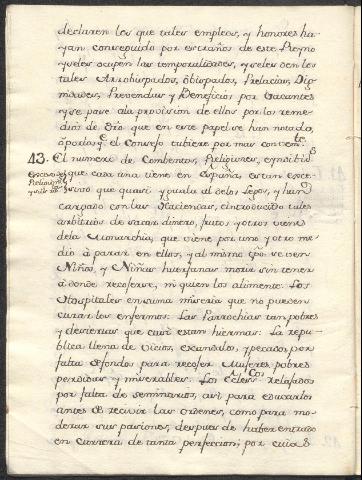 declaren los que tales empleos, y honores ha-
yan conseguido por estraños de este Reyno
y se les ocupen las temporalidades, y se les den los
tales Arzobispados, Obispados, Prelacias, Dig-
nidades, Prevendas y Beneficios por Vacantes
y se pase a la provision de ellos por los reme-
dios de dro que en este papel se han notado,
ô por los q.e el consejo tubiere por mas conven.te
43. El numero de Combentos, Religiones, e ynstitid.s
Religion.s
que casa una tiene en España, estan exce-
sivo que quasi yguala al de los Legos, y han
cargado con las Haciendas, e introducido tales
arbitrios de sacar dinero, frutos y otros vienes
de la Monarchia, que viene por uno y otro me-
dio â parar en ellos, y al mismo tpo se ven
Niños, y Niñas huerfanas morir sin tener
a donde recoserse, ni quien los alimente: Los
Hospitales en suma miseria que no pueden
curar los enfermos: Las Parrochias tan pobres
y desiertas que casi estan hiermas: La repu-
blica llena de vicios, escandalos, y pecados, por
falta de fondos para recoser Mujeres pobres
perdidas y miserables: Los Ecles.cos relajados
por falta de seminarios, asi para educarlos
antes de recivir las ordenes, como para mo-
derar sus pasiones, despues de haber entrado
en carrera de tanta perfeccion; por cuia